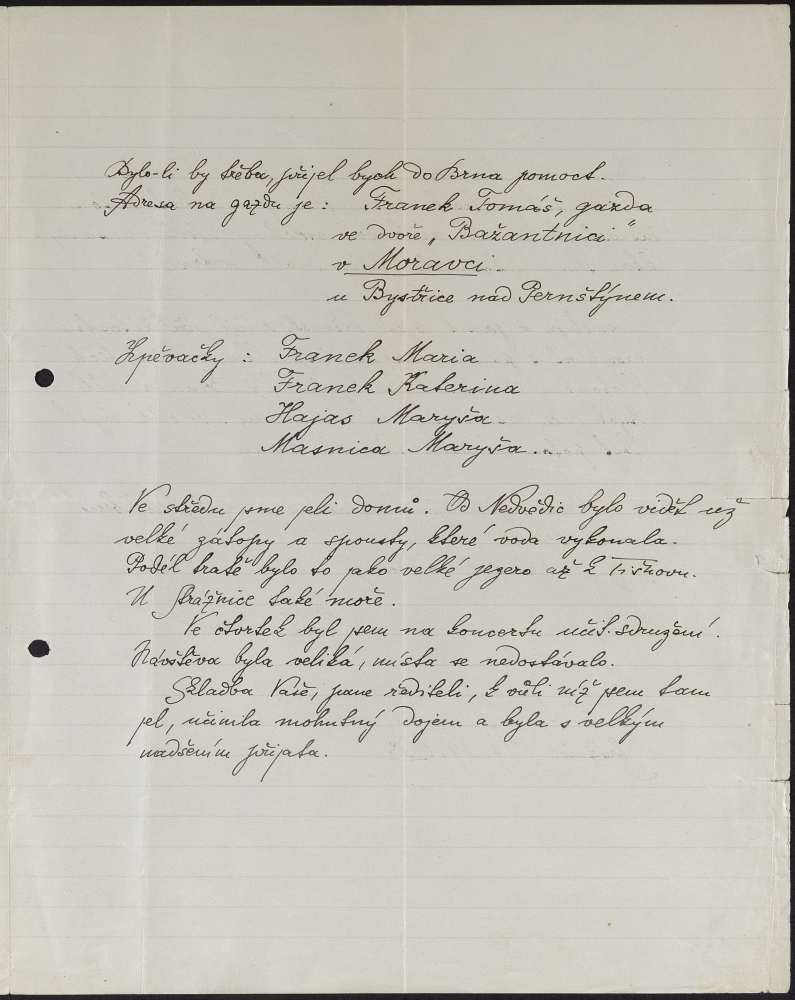 Bylo-li by třeba, přijel bych do Brna pomoct.
Adresa na gazdu je: Franek Tomáš, gazda
ve dvoře „Bažantnici"
v Moravci
u Bystřice nad Pernštýnem.
Zpěvačky: Franek Maria
Franek Katerina
Hajas Maryša
Masnica Maryša.
Ve středu jsme jeli domů. Od Nedvědic bylo vidět už
velké zátopy a spousty, které voda vykonala.
Podél tratě bylo to jako velké jezero až k Tišnovu.
U Strážnice také moře.
Ve čtvrtek byl jsem na koncertu učit. sdružení.
Návštěva byla veliká, místa se nedostávalo.
Skladba Vaše, pane řediteli, k vůli níž jsem tam
jel, učinila mohutný dojem a byla s velkým
nadšením přijata.